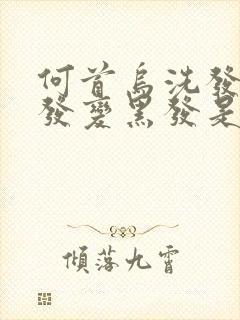 何首烏洗發
發變黑發是
傾落九霄